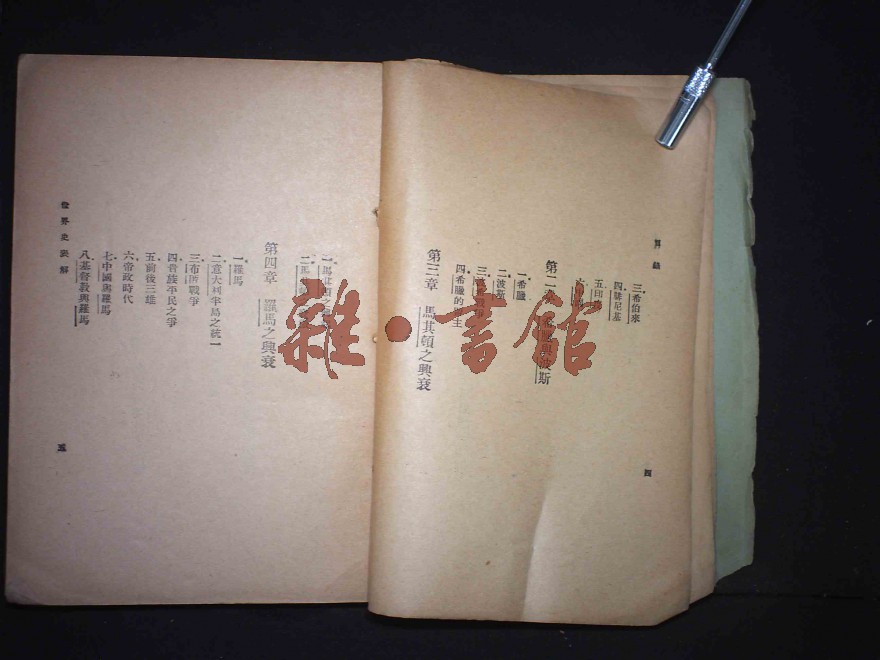 目錄
三·希伯來
四·腓尼基
五·印
第二章 希臘與波斯
一·希臘
二·波斯
三·戰爭
四·希臘的 主
第三章 馬其頓之興衰
四
一·馬其頓之
二·馬
第四章 羅馬之興衰
一·羅馬
二·意大利半島之統一
三·布匿戰爭
四·貴族平民之爭
五·前後三雄
六·帝政時代
七·中國與羅馬
八·基督教與羅馬
世界史要解
五
雜·書館